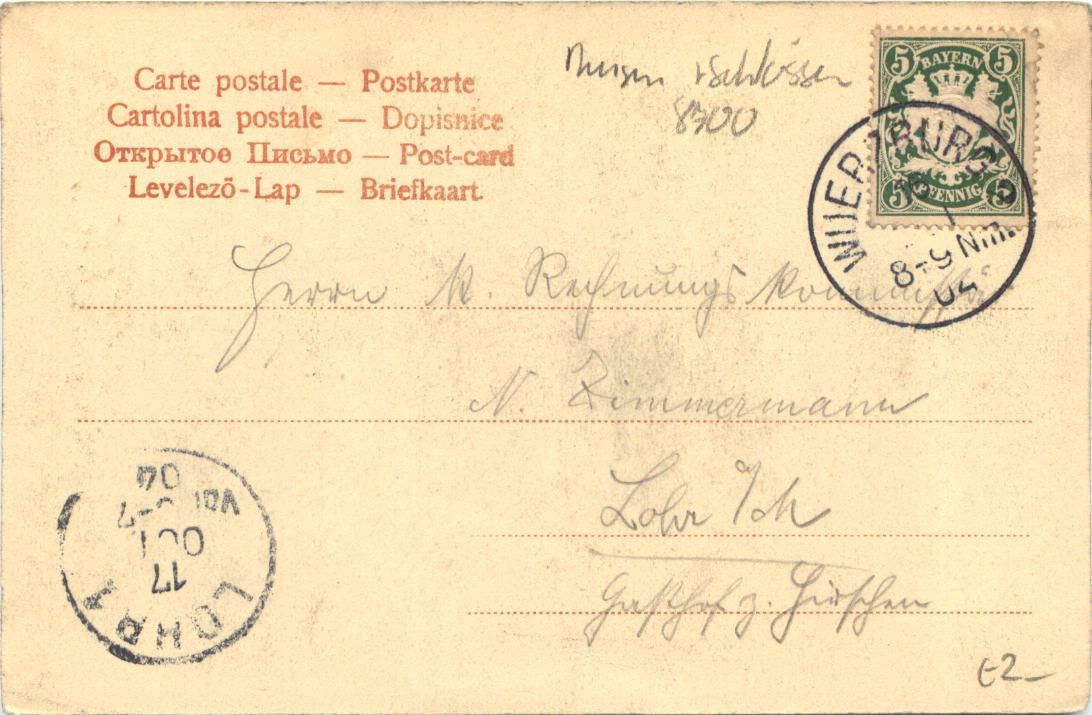 Carte postale — Postkarte
Cartolina postale — Dopisnice
Открытое Письмо — Post-card
Levelező-Lap — Briefkaart.
Schlösser
8700
5 BAYERN 5
5 PFENNIG 5
WUERZBURG 2
8-9 Nm.
04
Herrn K. Rechnungskommissär
N. Zimmermann
Lohr a/M
Gasthof z. Hirschen
LOHR 1
17
OCT
04
E2-